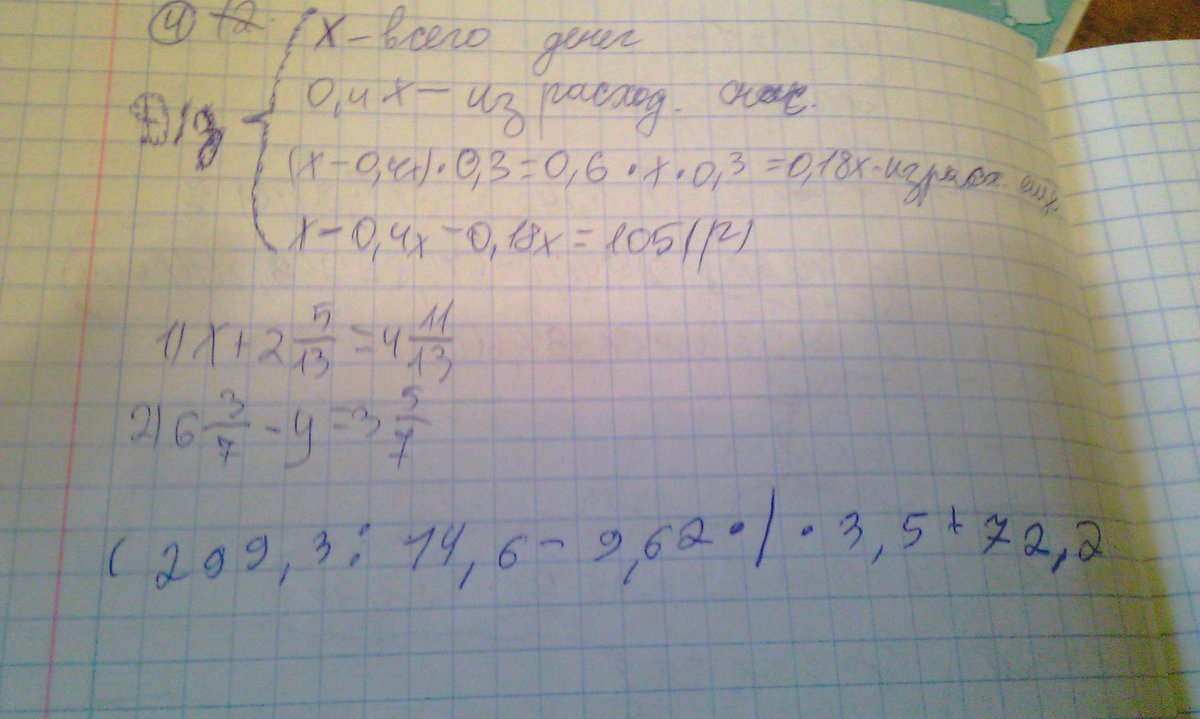 ④ 12.
x - всего денег
0,4x - из расход.
(x - 0,4x) · 0,3 = 0,6 · x · 0,3 = 0,18x -
x - 0,4x - 0,18x = 105 (р)
1) x + 2 5/13 = 4 11/13
2) 6 3/7 - y = 3 5/7
( 299,3 : 14,6 - 9,62 · ) · 3,5 + 72,2